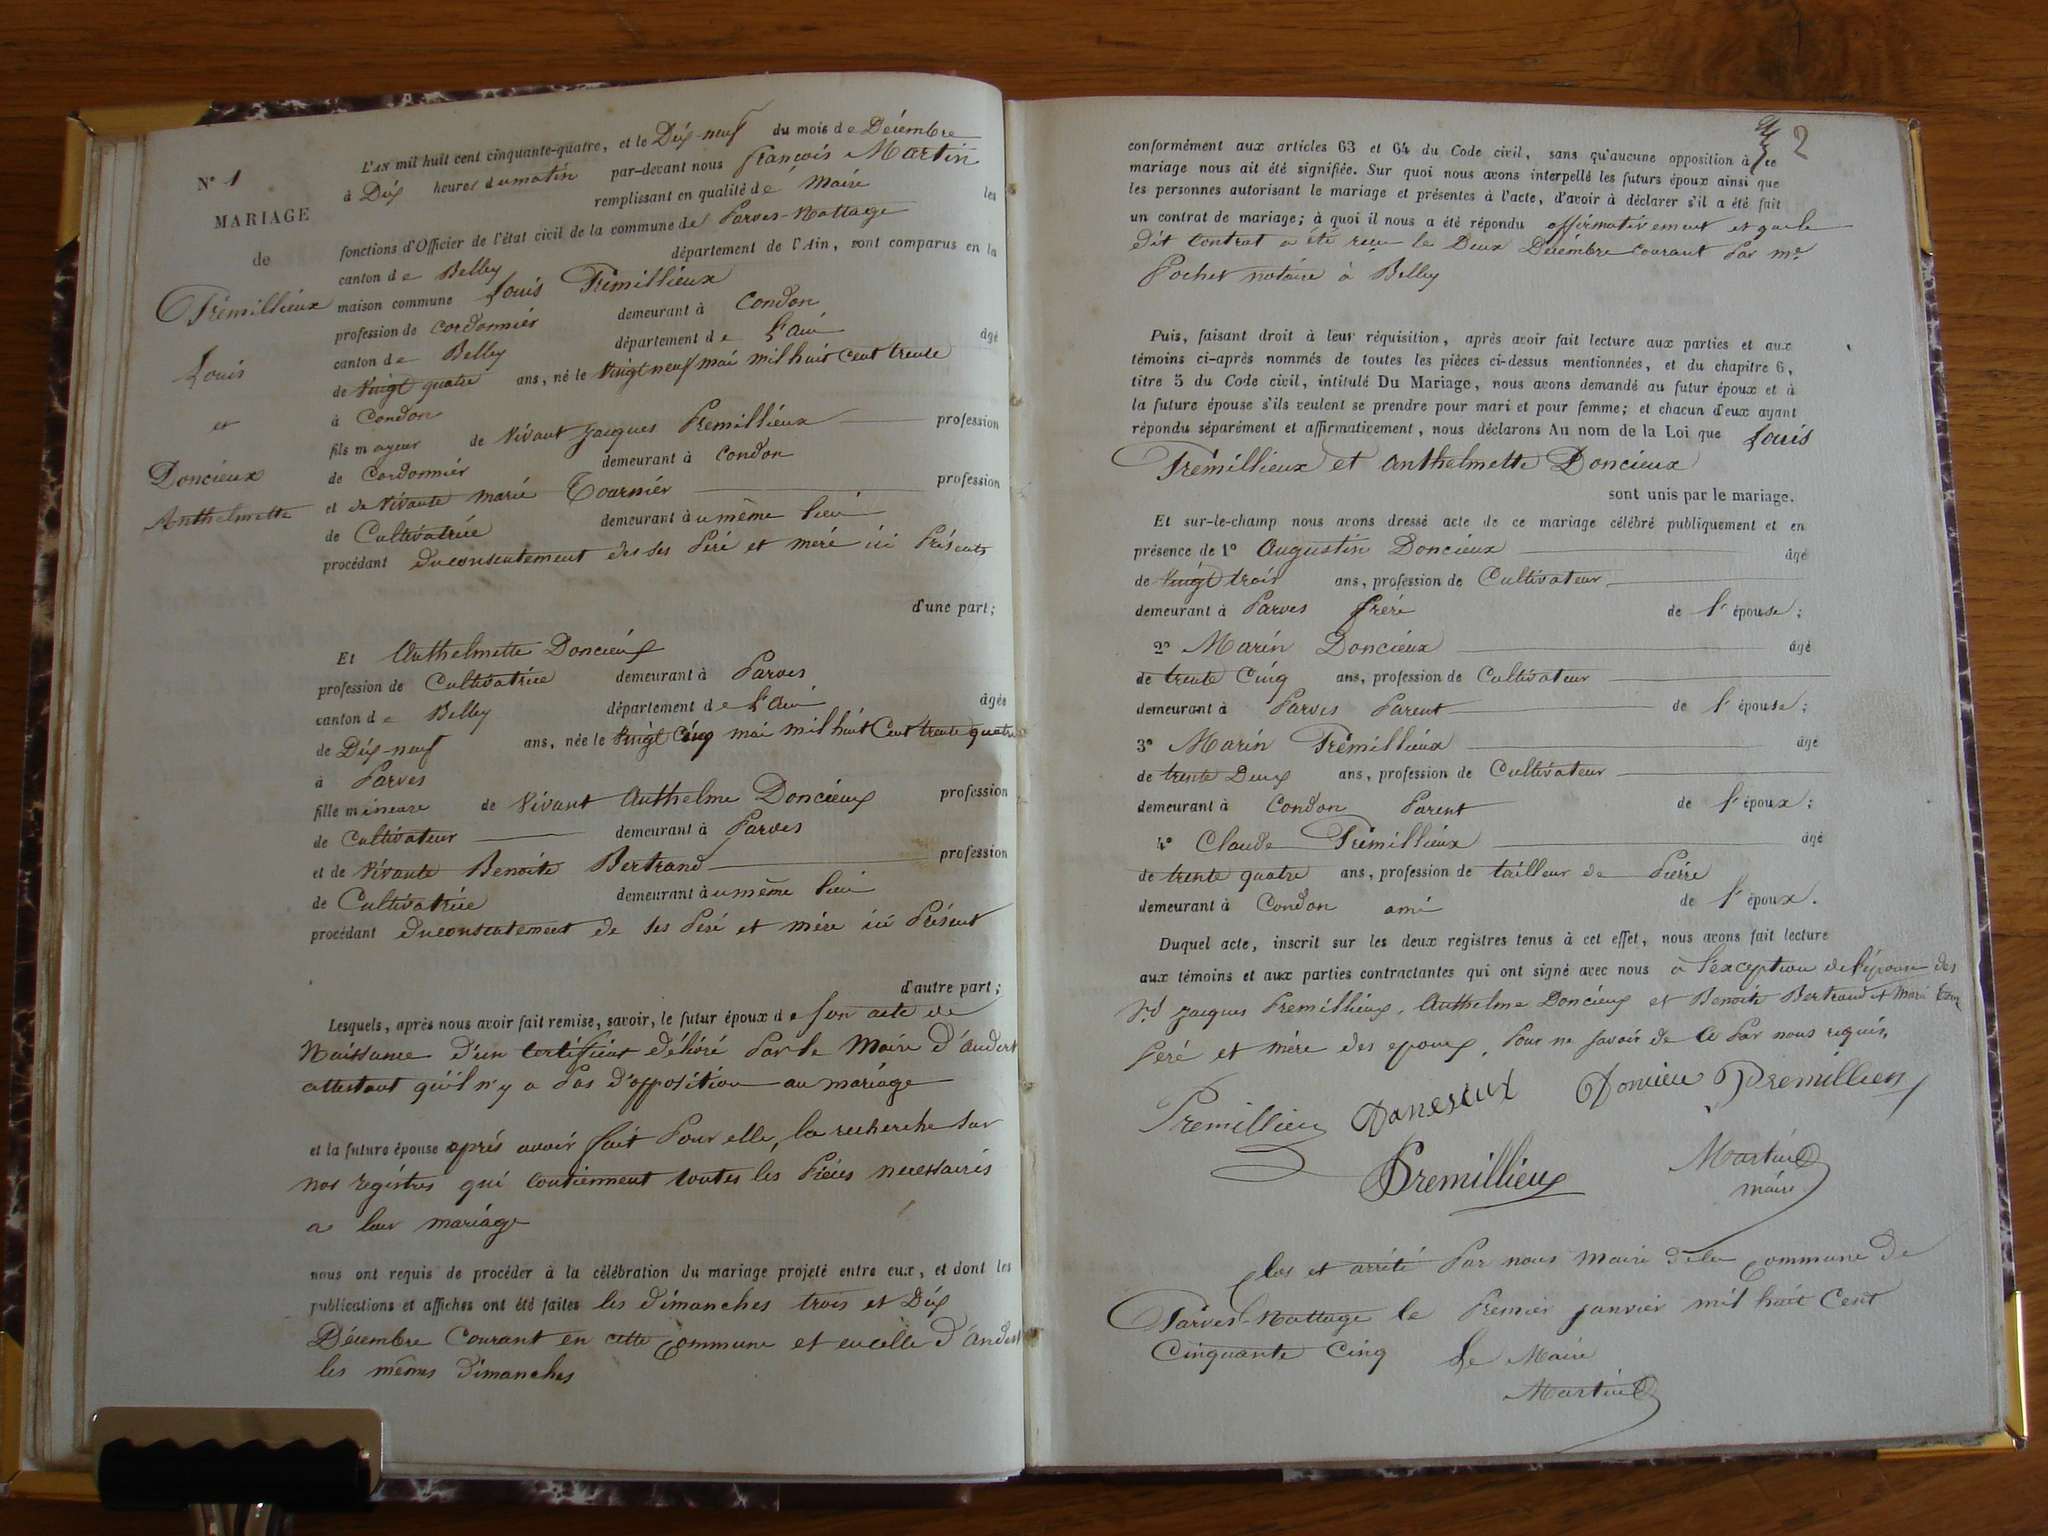 N° 1
MARIAGE
de
Prémillieux
Louis
et
Doncieux
Anthelmette
L'AN mil huit cent cinquante-quatre, et le Dix-neuf du mois de Décembre
à Dix heures du matin par-devant nous françois Martin
remplissant en qualité de Maire les
fonctions d'Officier de l'état civil de la commune de Parves-Nattage
canton de Belley département de l'Ain, sont comparus en la
maison commune Louis Prémillieux
profession de cordonnier demeurant à Condon
canton de Belley département de l'ain âgé
de Vingt quatre ans, né le Vingt neuf mai mil huit cent trente
à Condon
fils mayeur de Vivant Jacques Premillieux profession
de Cordonnier demeurant à Condon
et de Vivante marie Tournier profession
de Cultivatrice demeurant à u même lieu
procédant du consentement des ses Péré et meré ici Présents
d'une part;
Et Anthelmette Doncieux
profession de Cultivatrice demeurant à Parves
canton de Belley département de L'ain âgée
de Dix-neuf ans, née le Vingt Cinq mai mil huit Cent trente quatre
à Parves
fille mineure de Vivant Anthelme Doncieux profession
de Cultivateur demeurant à Parves
et de Vivante Benoite Bertrand profession
de Cultivatrice demeurant à u même lieu
procédant du consentement de ses Péré et mére ici Présent
d'autre part;
Lesquels, après nous avoir fait remise, savoir, le futur époux de son acte de
Naissance d'un certificat délivré Par le Maire d'Andert
attestant qu'il n'y a Pas d'opposition au mariage
et la future épouse aprés avoir fait Pour elle, la recherche sur
nos régistres qui contiennent toutes les Piéces necessaires
a leur mariage
nous ont requis de procéder à la célébration du mariage projeté entre eux, et dont les
publications et affiches ont été faites les dimanches trois et Dix
Décembre Courant en cette Commune et en celle d'Andert
les mêmes dimanches
2
conformément aux articles 63 et 64 du Code civil, sans qu'aucune opposition à ce
mariage nous ait été signifiée. Sur quoi nous avons interpellé les futurs époux ainsi que
les personnes autorisant le mariage et présentes à l'acte, d'avoir à déclarer s'il a été fait
un contrat de mariage; à quoi il nous a été répondu affirmativement et que le
dit Contrat a été reçu le Deux Décembre Courant Par me
Pochet notaire à Belley
Puis, faisant droit à leur réquisition, après avoir fait lecture aux parties et aux
témoins ci-après nommés de toutes les pièces ci-dessus mentionnées, et du chapitre 6,
titre 5 du Code civil, intitulé Du Mariage, nous avons demandé au futur époux et à
la future épouse s'ils veulent se prendre pour mari et pour femme; et chacun d'eux ayant
répondu séparément et affirmativement, nous déclarons Au nom de la Loi que Louis
Prémillieux et Anthelmette Doncieux
sont unis par le mariage.
Et sur-le-champ nous avons dressé acte de ce mariage célébré publiquement et en
présence de 1° Augustin Doncieux âgé
de Vingt trois ans, profession de Cultivateur
demeurant à Parves frére de l'épouse;
2° Marin Doncieux âgé
de trente Cinq ans, profession de Cultivateur
demeurant à Parves Parent de l'épouse;
3° Marin Prémillieux âgé
de trente Deux ans, profession de Cultivateur
demeurant à Condon Parent de l'époux;
4° Claude Prémillieux âgé
de trente quatre ans, profession de tailleur de Pierre
demeurant à Condon ami de l'époux.
Duquel acte, inscrit sur les deux registres tenus à cet effet, nous avons fait lecture
aux témoins et aux parties contractantes qui ont signé avec nous à l'exception de l'épouse des
Jacques Premillieux, Anthelme Doncieux et Benoite Bertrand et Marie
Péré et mére des epoux, Pour ne savoir de ce Par nous requis,
Premillieu Doncieu Premillieux
Premillieux Martin
maire
Clos et arrété Par nous Maire de la Commune de
Parves-Nattage le Premier janvier mil huit Cent
Cinquante Cinq Le Maire
Martin